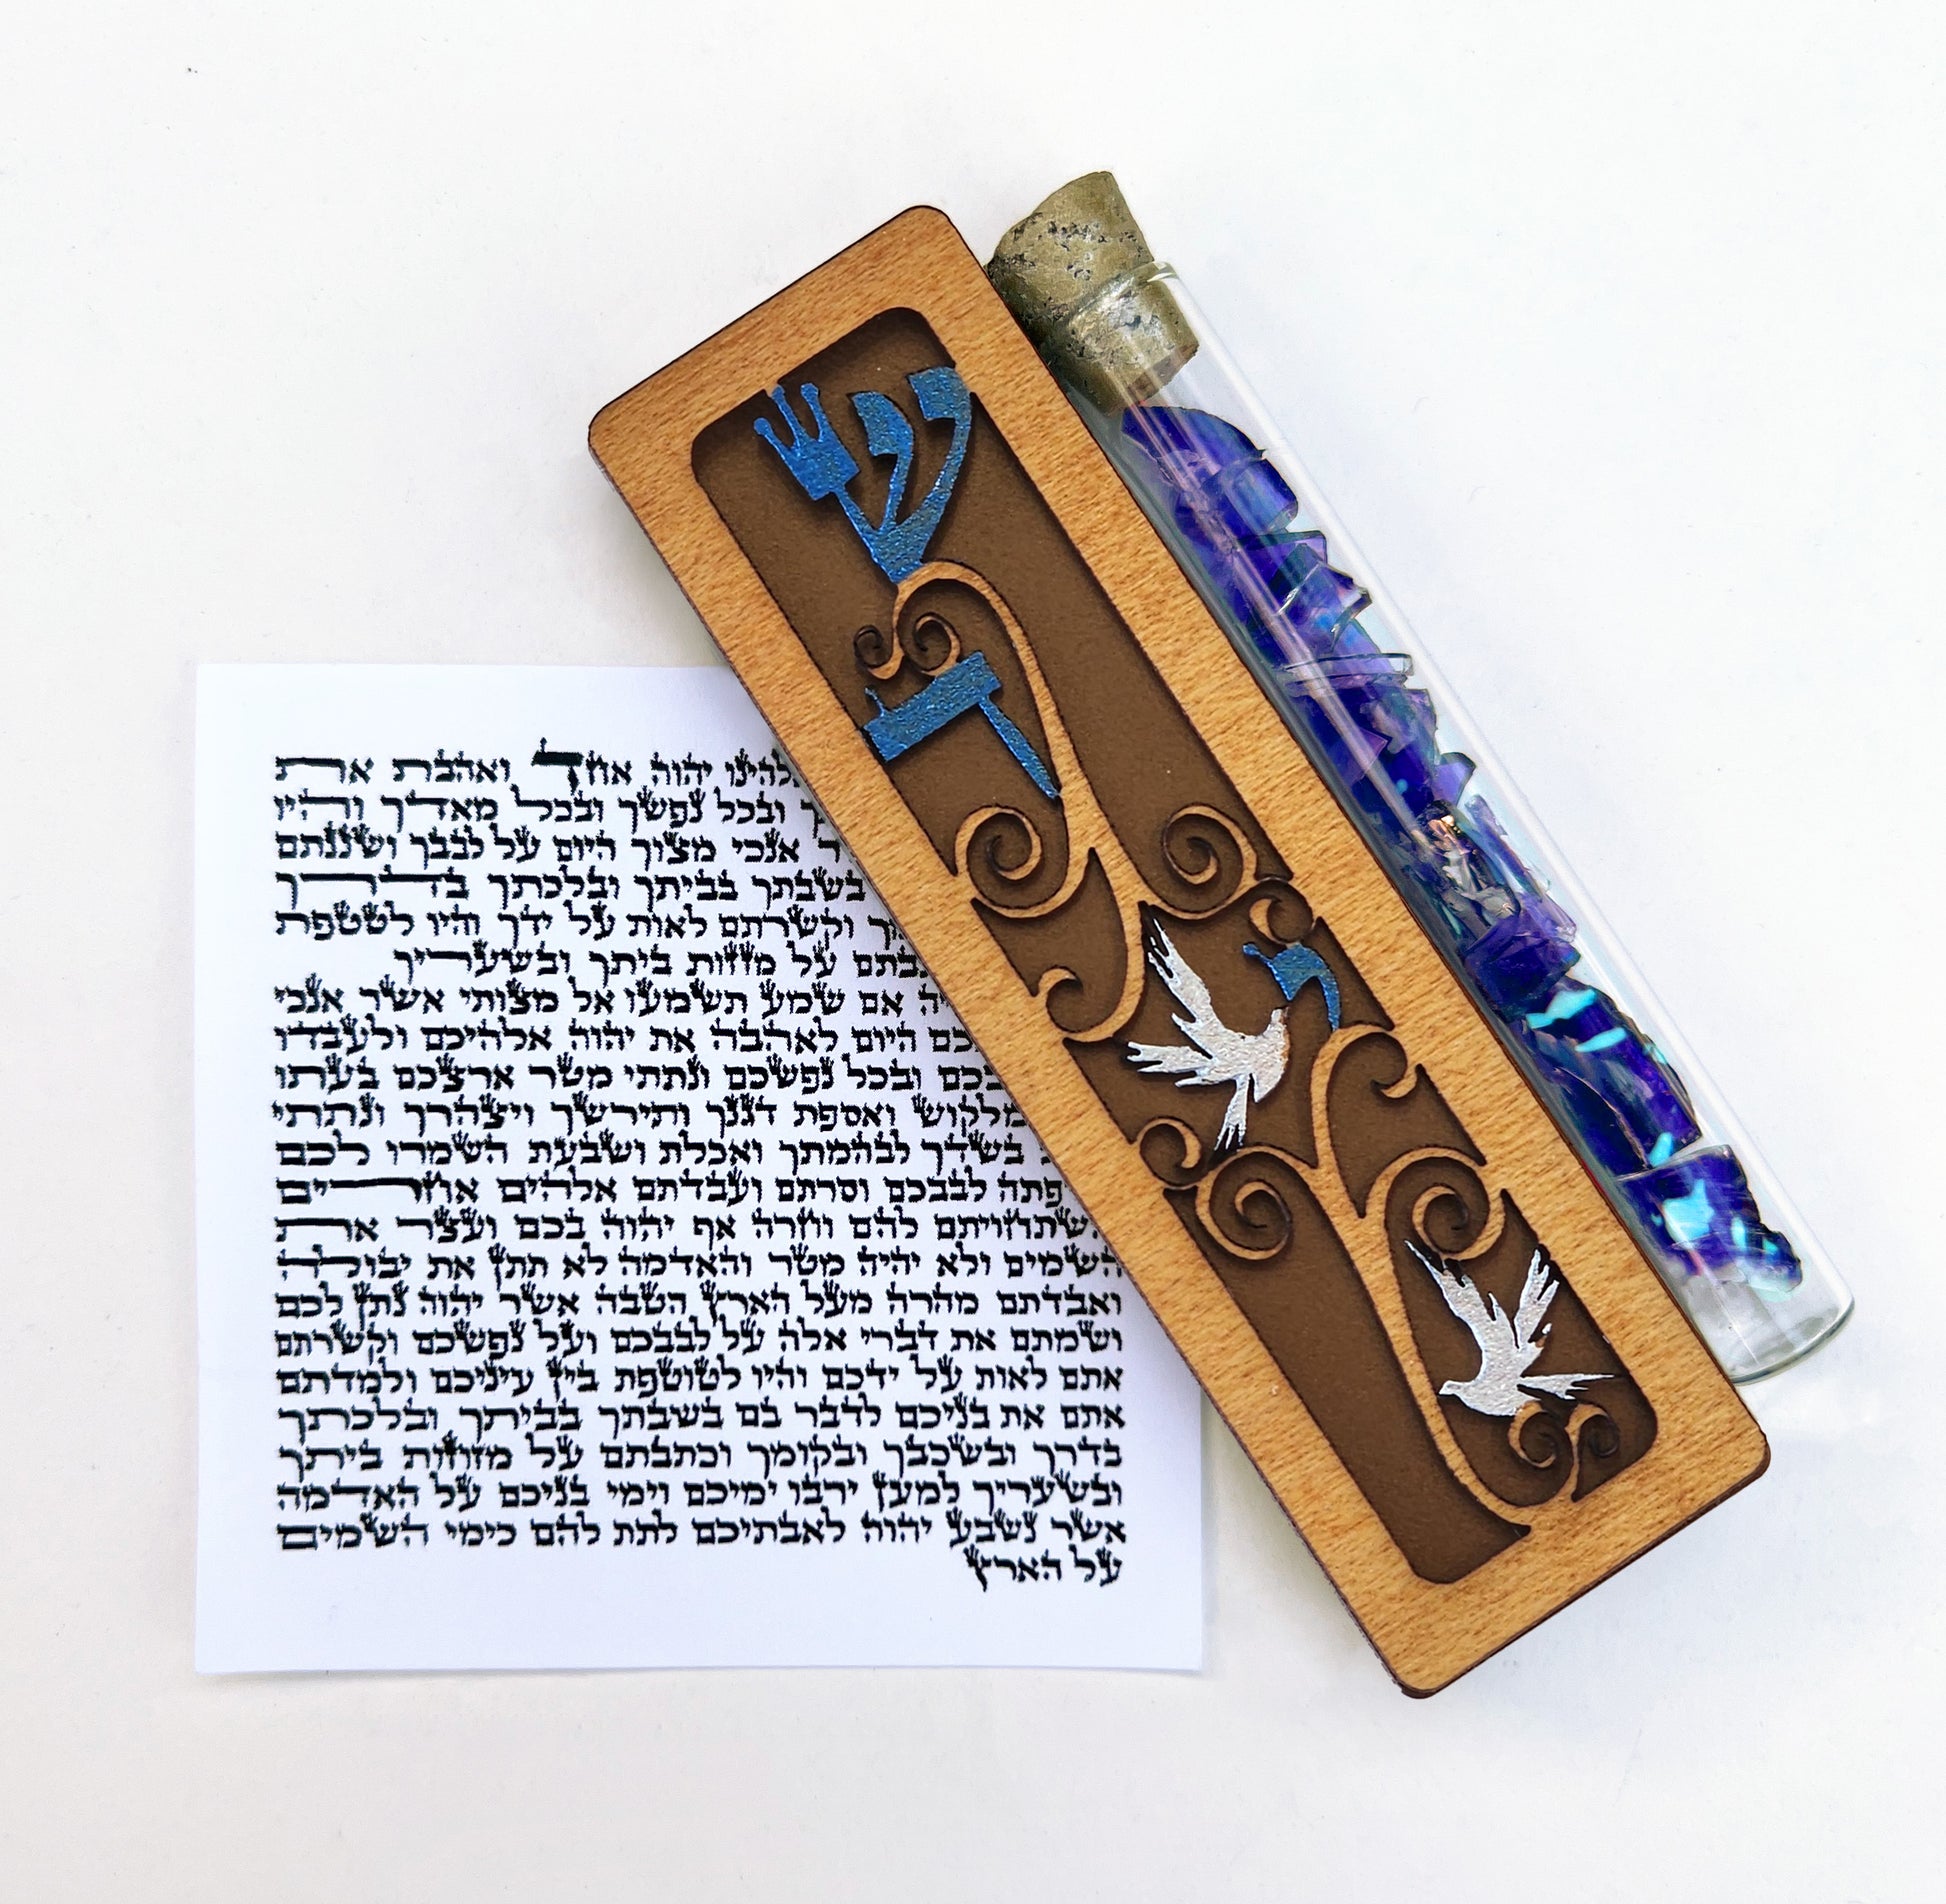 יהוה אחד ואהבת את
ובכל נפשך ובכל מאדך והיו
אנכי מצוך היום על לבבך ושננתם
בשבתך בביתך ובלכתך בדרך
וקשרתם לאות על ידך והיו לטטפת
על מזזות ביתך ובשעריך
אם שמע תשמעו אל מצותי אשר אנכי
היום לאהבה את יהוה אלהיכם ולעבדו
ובכל נפשכם ונתתי מטר ארצכם בעתו
ואספת דגנך ותירשך ויצהרך ונתתי
בשדך לבהמתך ואכלת ושבעת השמרו לכם
לבבכם וסרתם ועבדתם אלהים אחרים
להם וחרה אף יהוה בכם ועצר את
השמים ולא יהיה מטר והאדמה לא תתן את יבולה
ואבדתם מהרה מעל הארץ הטבה אשר יהוה נתן לכם
ושמתם את דברי אלה על לבבכם ועל נפשכם וקשרתם
אתם לאות על ידכם והיו לטוטפת בין עיניכם ולמדתם
אתם את בניכם לדבר בם בשבתך בביתך ובלכתך
בדרך ובשכבך ובקומך וכתבתם על מזוזות ביתך
ובשעריך למען ירבו ימיכם וימי בניכם על האדמה
אשר נשבע יהוה לאבתיכם לתת להם כימי השמים
על הארץ
ש
ד
י